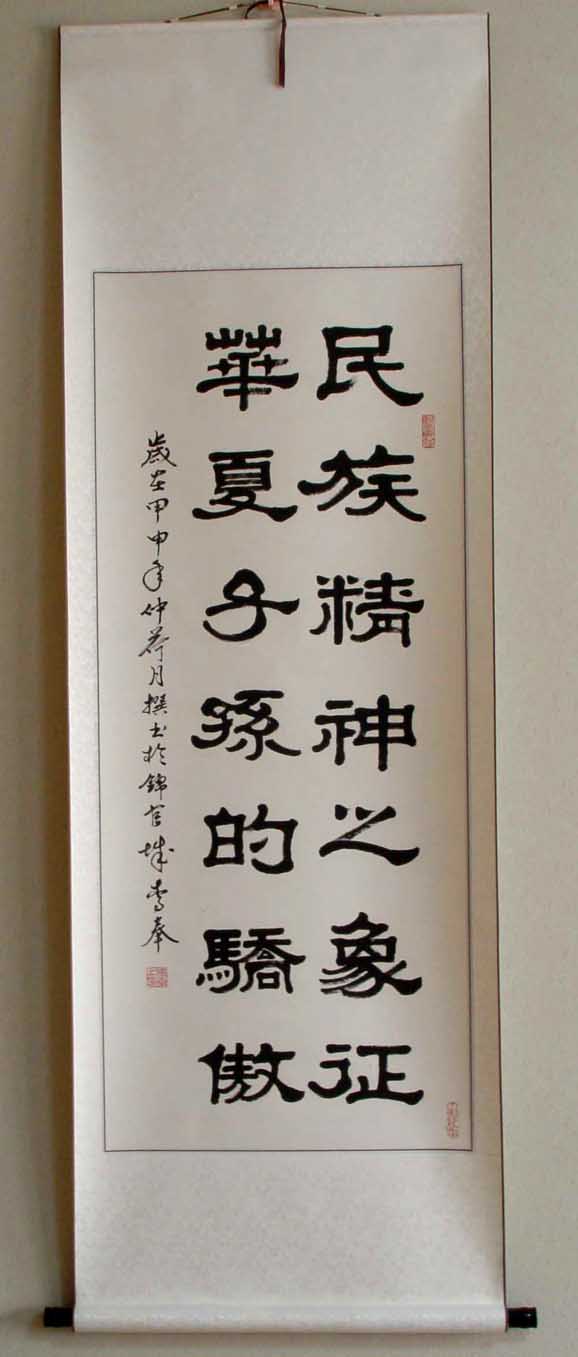 民族精神之象征
華夏子孫的驕傲
歲在甲申年仲荷月撰书於錦官城李奉